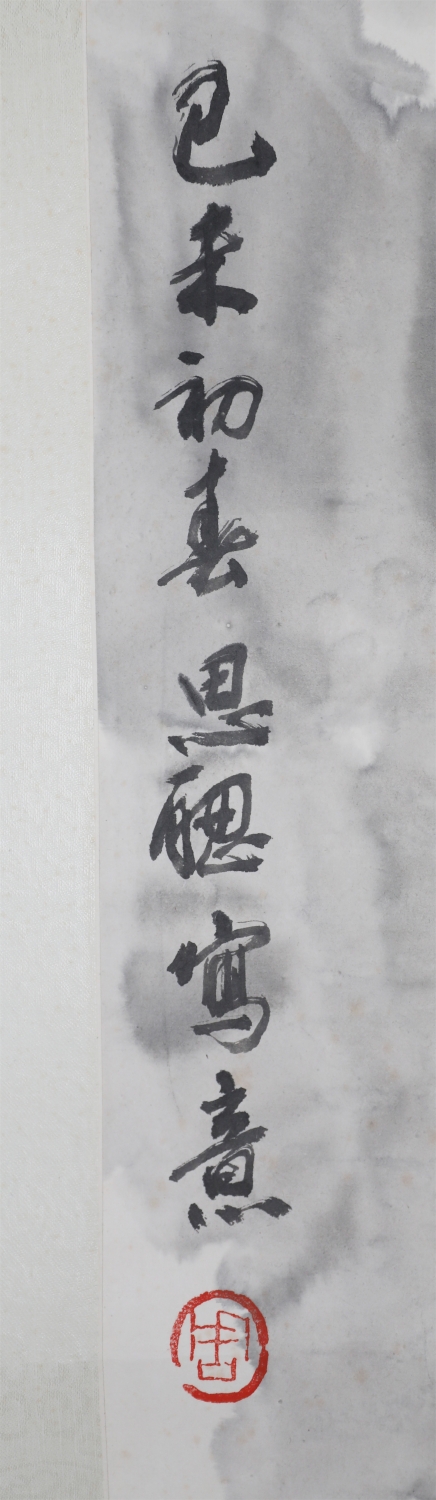 己未初春思聰寫意
周